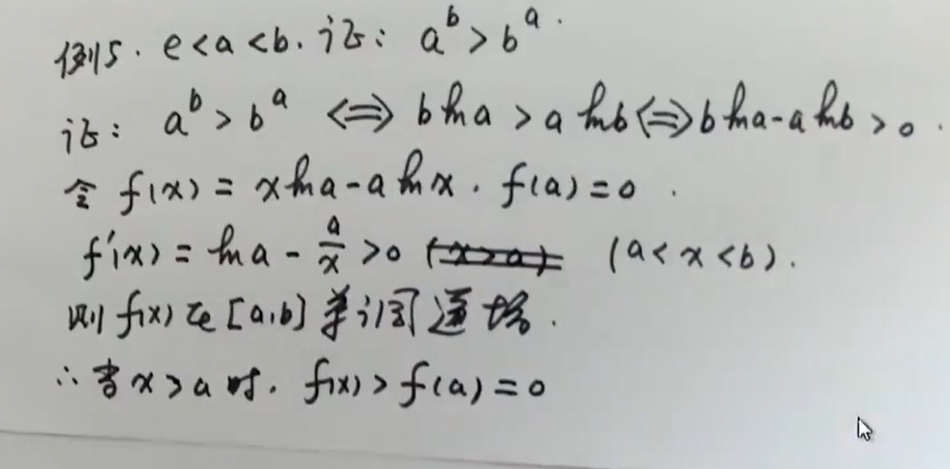 例5. e<a<b. 证: a^b>b^a.
证: a^b>b^a ⟺ b ln a > a ln b ⟺ b ln a - a ln b > 0.
令 f(x) = x ln a - a ln x. f(a)=0.
f'(x) = ln a - a/x >0 (x>a) (a<x<b).
则 f(x) 在 [a,b] 单调递增.
∴ 当 x>a 时. f(x) > f(a) = 0